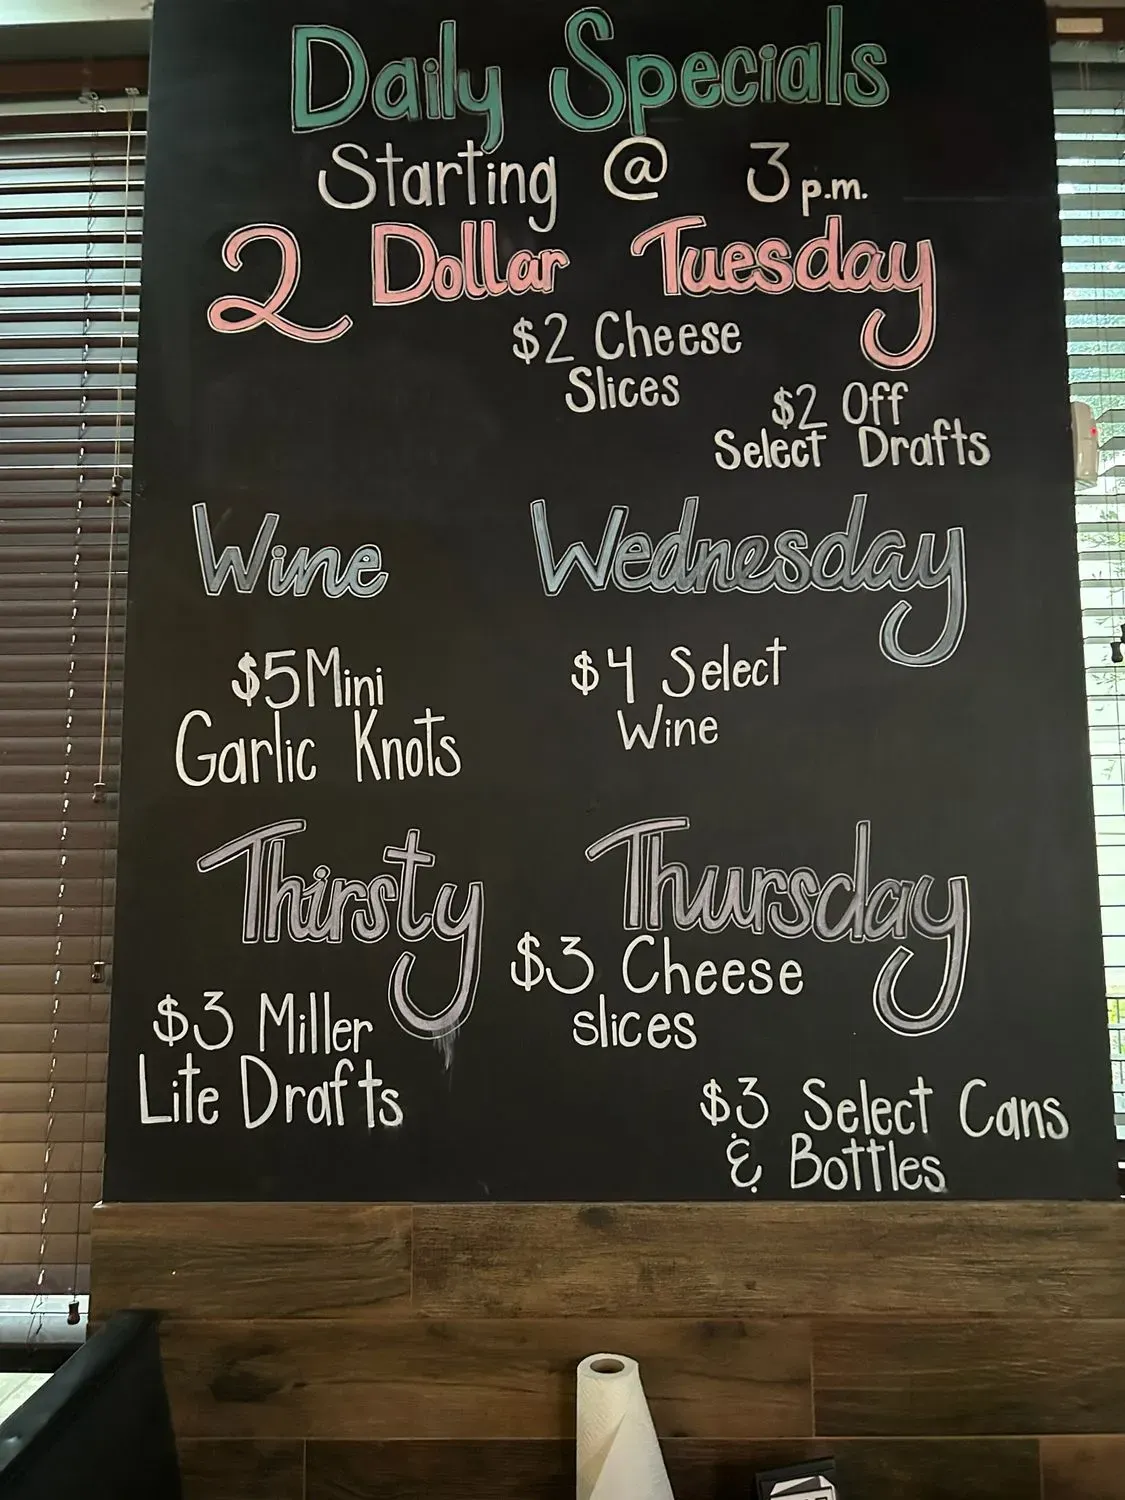 Daily Specials
Starting @ 3 p.m.
2 Dollar Tuesday
$2 Cheese
Slices
$2 Off
Select Drafts
Wine Wednesday
$5 Mini
Garlic Knots
$4 Select
Wine
Thirsty Thursday
$3 Cheese
slices
$3 Miller
Lite Drafts
$3 Select Cans
& Bottles